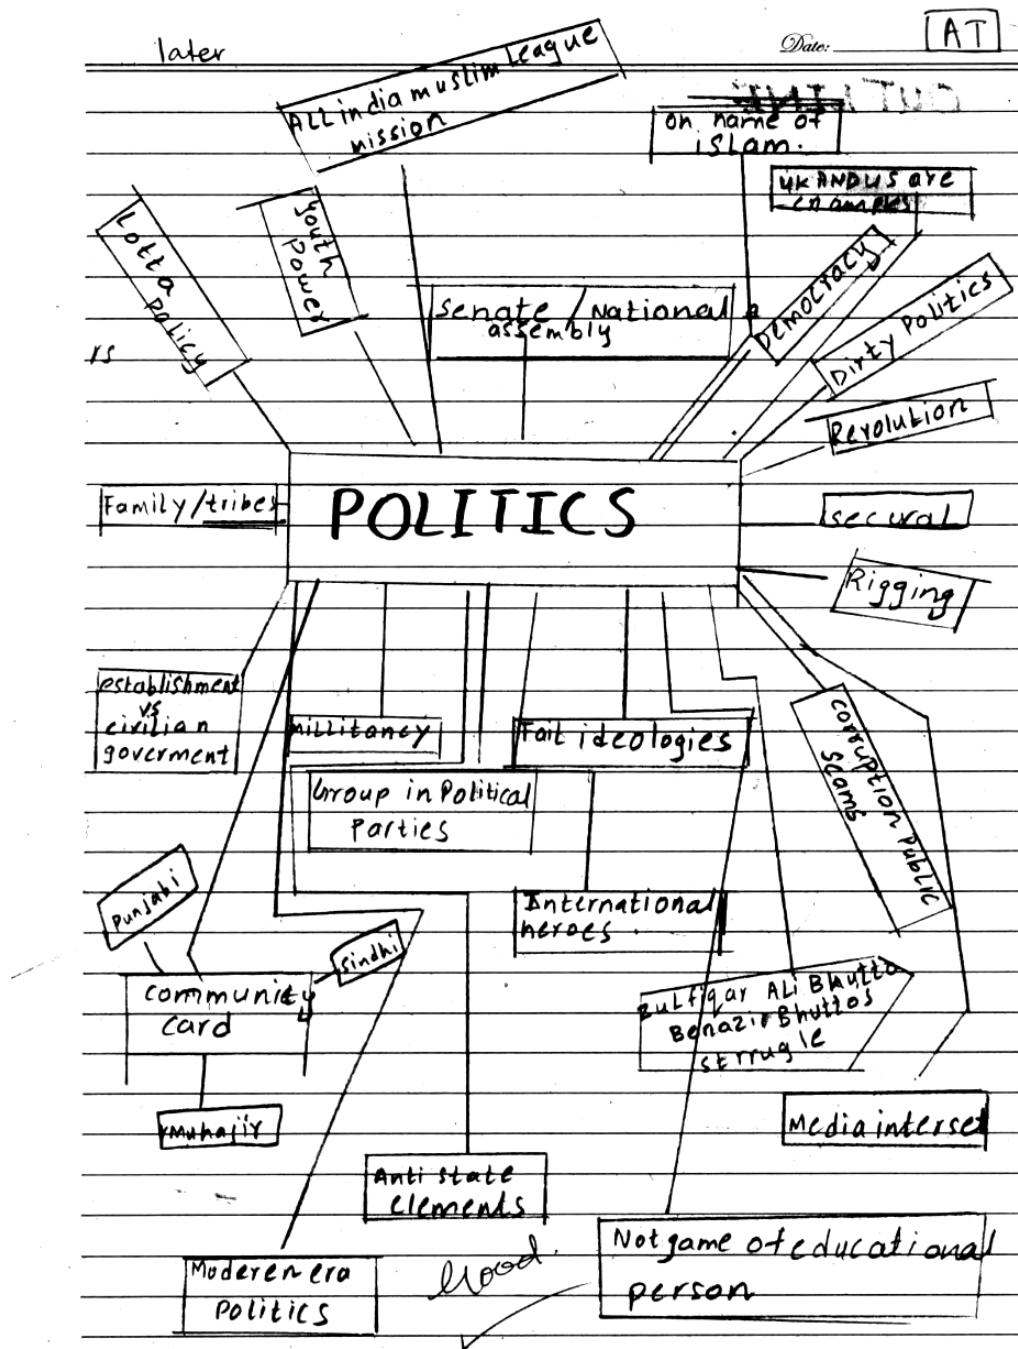 later
Date:
AT
ALL india muslim League
mission
on name of
islam.
UK AND US are
examples
Lotta
Policy
youth
Power
Senate / National
assembly
DEMOCRACY
Dirty Politics
rs
Revolution
Family/tribes
POLITICS
secural
Rigging
establishment
vs
civilian
goverment
millitancy
Fait ideologies
corruption Public
scams
Group in Political
Parties
Punjabi
International
heroes.
sindhi
community
card
Zulfiqar Ali Bhutto
Benazir Bhuttos
strrugle
Muhajir
Media interset
Anti state
Elements
Not game of educational
person
Good.
Moderen era
Politics